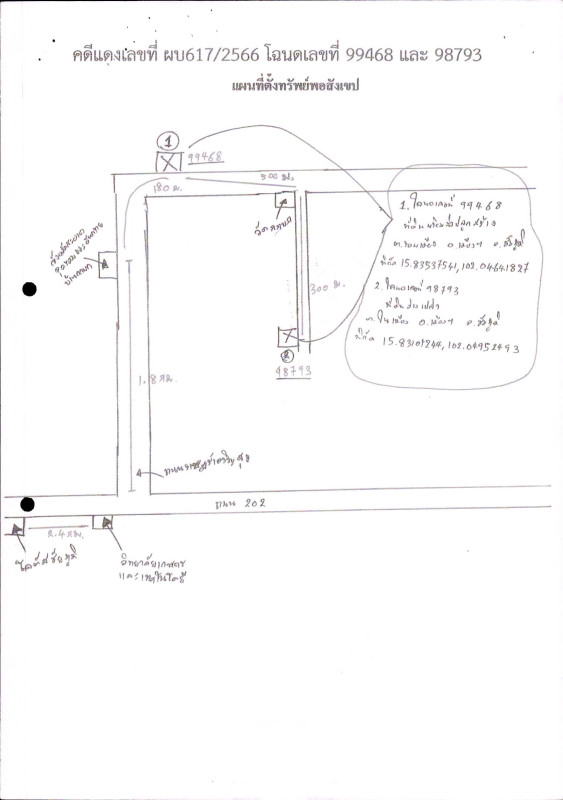 คดีแดงเลขที่ ผบ617/2566 โฉนดเลขที่ 99468 และ 98793
แผนที่ตั้งทรัพย์พอสังเขป
1
99468
180 ม.
500 ม.
1. โฉนดเลขที่ 99468
ที่ดินพร้อมสิ่งปลูกสร้าง
ต.ในเมือง อ.เมืองฯ จ.ชัยภูมิ
พิกัด 15.83537541, 102.04641827
2. โฉนดเลขที่ 98793
ที่ดินว่างเปล่า
ต.ในเมือง อ.เมืองฯ จ.ชัยภูมิ
พิกัด 15.83101244, 102.04952493
300 ม.
2
98793
1.8 กม.
ถนน 202
2.4 กม.
โลตัสชัยภูมิ
วิทยาลัยเกษตร
และเทคโนโลยี